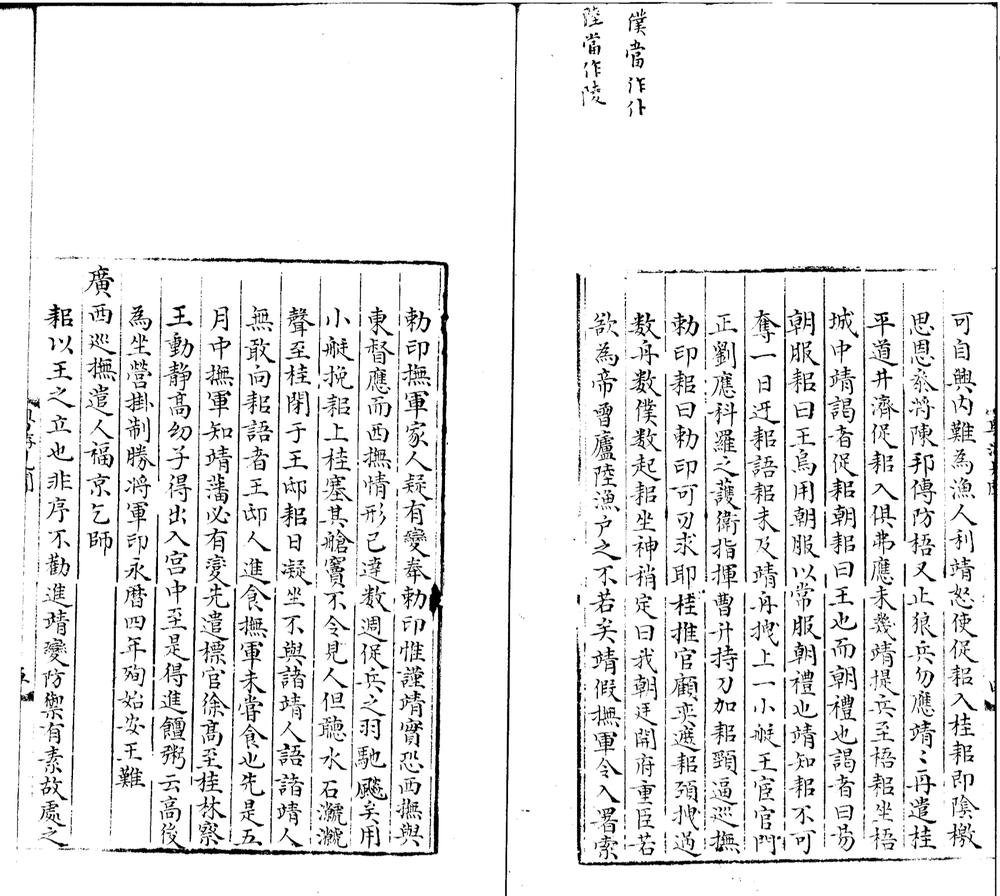 僕當作仆
陸當作陵
可自興內難為漁人利靖怒使促耜入桂耜即陰檄
思恩叅將陳邦傳防梧又止狼兵勿應靖〻再遣桂
平道井濟促耜入俱弗應未幾靖提兵至梧耜坐梧
城中靖謁者促耜朝耜曰王也而朝禮也謁者曰易
朝服耜曰王烏用朝服以常服朝禮也靖知耜不可
奪一日迓耜語耜未及靖舟拽上一小艇王宦官門
正劉應科羅之護衛指揮曹升持刀加耜頸逼巡撫
勅印耜曰勅印可刃求耶桂推官顧奕遽耜頚拽過
数舟数僕数起耜坐神稍定曰我朝廷開府重臣若
欲為帝曾廬陸漁户之不若矣靖假撫軍令入署索
勅印撫軍家人疑有變奉勅印惟謹靖實恐西撫與
東督應而西撫情形已達数週促兵之羽馳飈矣用
小艇挽耜上桂塞其艙竇不令見人但聽水石瀧瀧
聲至桂閉于王邸耜日凝坐不與諸靖人語諸靖人
無敢向耜語者王邸人進食撫軍未嘗食也先是五
月中撫軍知靖藩必有變先遣標官徐高至桂林察
王動静高幼子得出入宫中至是得進饘粥云高後
為坐營掛制勝將軍印永曆四年殉始安王難
廣西巡撫遣人福京乞師
耜以王之立也非序不勸進靖變防禦有素故處之